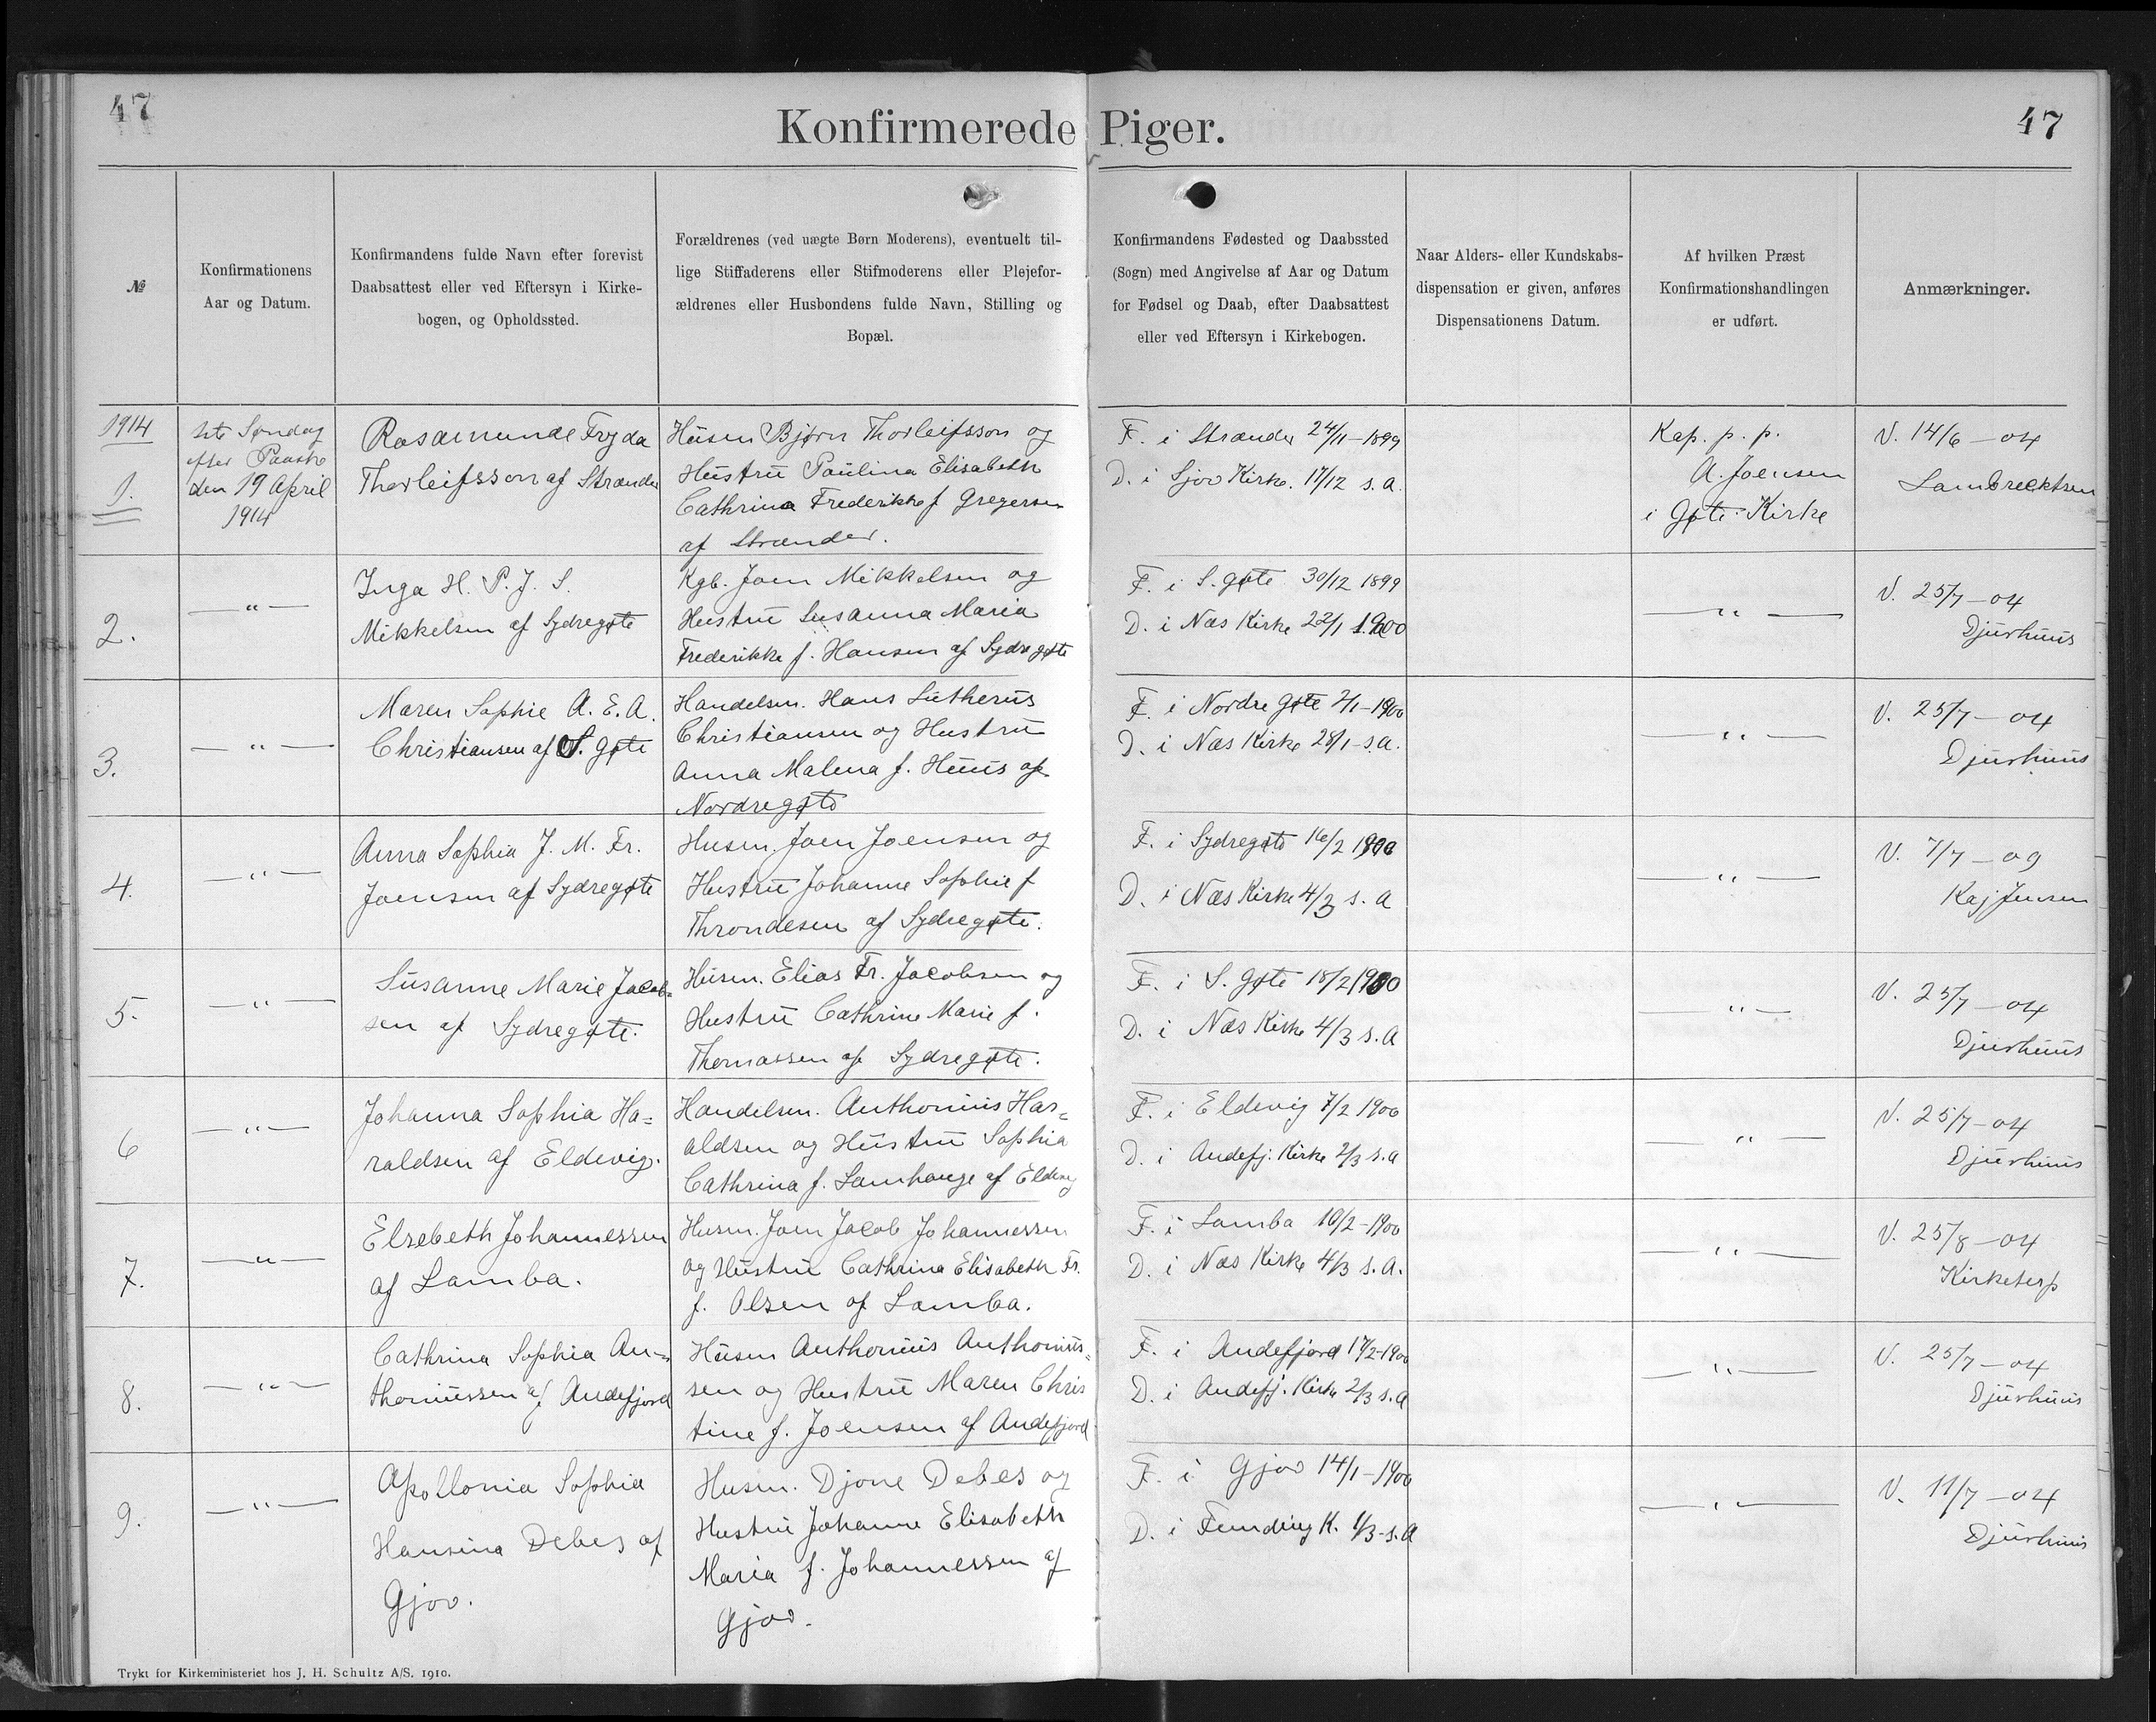 47
Konfirmerede Piger.
47
№
Konfirmationens
Aar og Datum.
Konfirmandens fulde Navn efter forevist
Daabsattest eller ved Eftersyn i Kirke-
bogen, og Opholdssted.
Forældrenes (ved uægte Børn Moderens), eventuelt til-
lige Stiffaderens eller Stifmoderens eller Plejefor-
ældrenes eller Husbondens fulde Navn, Stilling og
Bopæl.
Konfirmandens Fødested og Daabssted
(Sogn) med Angivelse af Aar og Datum
for Fødsel og Daab, efter Daabsattest
eller ved Eftersyn i Kirkebogen.
Naar Alders- eller Kundskabs-
dispensation er given, anføres
Dispensationens Datum.
Af hvilken Præst
Konfirmationshandlingen
er udført.
Anmærkninger.
1914
1.
1ste Søndag
efter Paaske
den 19 April
1914
Rosamunde Fryda
Thorleifsson af Strænder
Husm Bjørn Thorleifsson og
Hustru Paulina Elisabeth
Cathrina Frederikke f Gregersen
af Strænder.
F. i Strænder 24/11-1899
D. i Sjov Kirke. 17/12 s.a.
Kap. p. p.
A. Joensen
i Gøte Kirke
V. 14/6 - 04
Lambrecktsen
2.
— " —
Inga H. P. J. S.
Mikkelsen af Sydregøte
Kgb. Joen Mikkelsen og
Hustru Susanna Maria
Frederikke f. Hansen af Sydregøte
F. i S. gøte 30/12 1899
D. i Næs Kirke 22/1 1900
— " —
V. 25/7 - 04
Djurhuus
3.
— " —
Maren Sophie A. E. A.
Christiansen af S. Gøte
Handelsm. Hans Lutherus
Christiansen og Hustru
Anna Malena f. Huus af
Nordregøte
F. i Nordre Gøte 2/1-1900
D. i Næs Kirke 28/1-s.a.
— " —
V. 25/7 - 04
Djurhuus
4.
— " —
Anna Sophia J. M. Fr.
Joensen af Sydregøte
Husm. Joen Joensen og
Hustru Johanne Sophie f
Throndesen af Sydregøte.
F. i Sydregøte 16/2 1900
D. i Næs Kirke 4/3 s. a
— " —
V. 7/7 - 09
Kaj Jensen
5.
— " —
Susanne Marie Jacob-
sen af Sydregøte.
Husm. Elias Fr. Jacobsen og
Hustru Cathrine Marie f.
Thomassen af Sydregøte.
F. i S. Gøte 18/2 1900
D. i Næs Kirke 4/3 s.a
— " —
V. 25/7 - 04
Djurhuus
6
— " —
Johanna Sophia Ha=
raldsen af Eldevig.
Handelsm. Anthonius Har=
aldsen og Hustru Sophia
Cathrina f. Lamhauge af Eldevig
F. i Eldevig 7/2 1900
D. i Andefj. Kirke 2/3 s.a
— " —
V. 25/7 - 04
Djurhuus
7.
— " —
Elsebeth Johannessen
af Lamba.
Husm. Joen Jacob Johannessen
og Hustru Cathrina Elisabeth Fr.
f. Olsen af Lamba.
F. i Lamba 10/2-1900
D. i Næs Kirke 4/3 s.a.
— " —
V. 25/8 - 04
Kirketerp
8.
— " —
Cathrina Sophia An=
thoniussen af Andefjord
Husm Anthonius Anthonius=
sen og Hustru Maren Chris
tine f. Joensen af Andefjord
F. i Andefjord 17/2-1900
D. i Andefj. Kirke 2/3 s.a
— " —
V. 25/7 - 04
Djurhuus
9.
— " —
Apollonia Sophia
Hansina Debes af
Gjov.
Husm. Djone Debes og
Hustru Johanne Elisabeth
Maria f. Johannessen af
Gjov.
F. i Gjov 14/1-1900
D. i Funding K. 1/3-s.a
— " —
V. 11/7 - 04
Djurhuus
Trykt for Kirkeministeriet hos J. H. Schultz A/S. 1910.